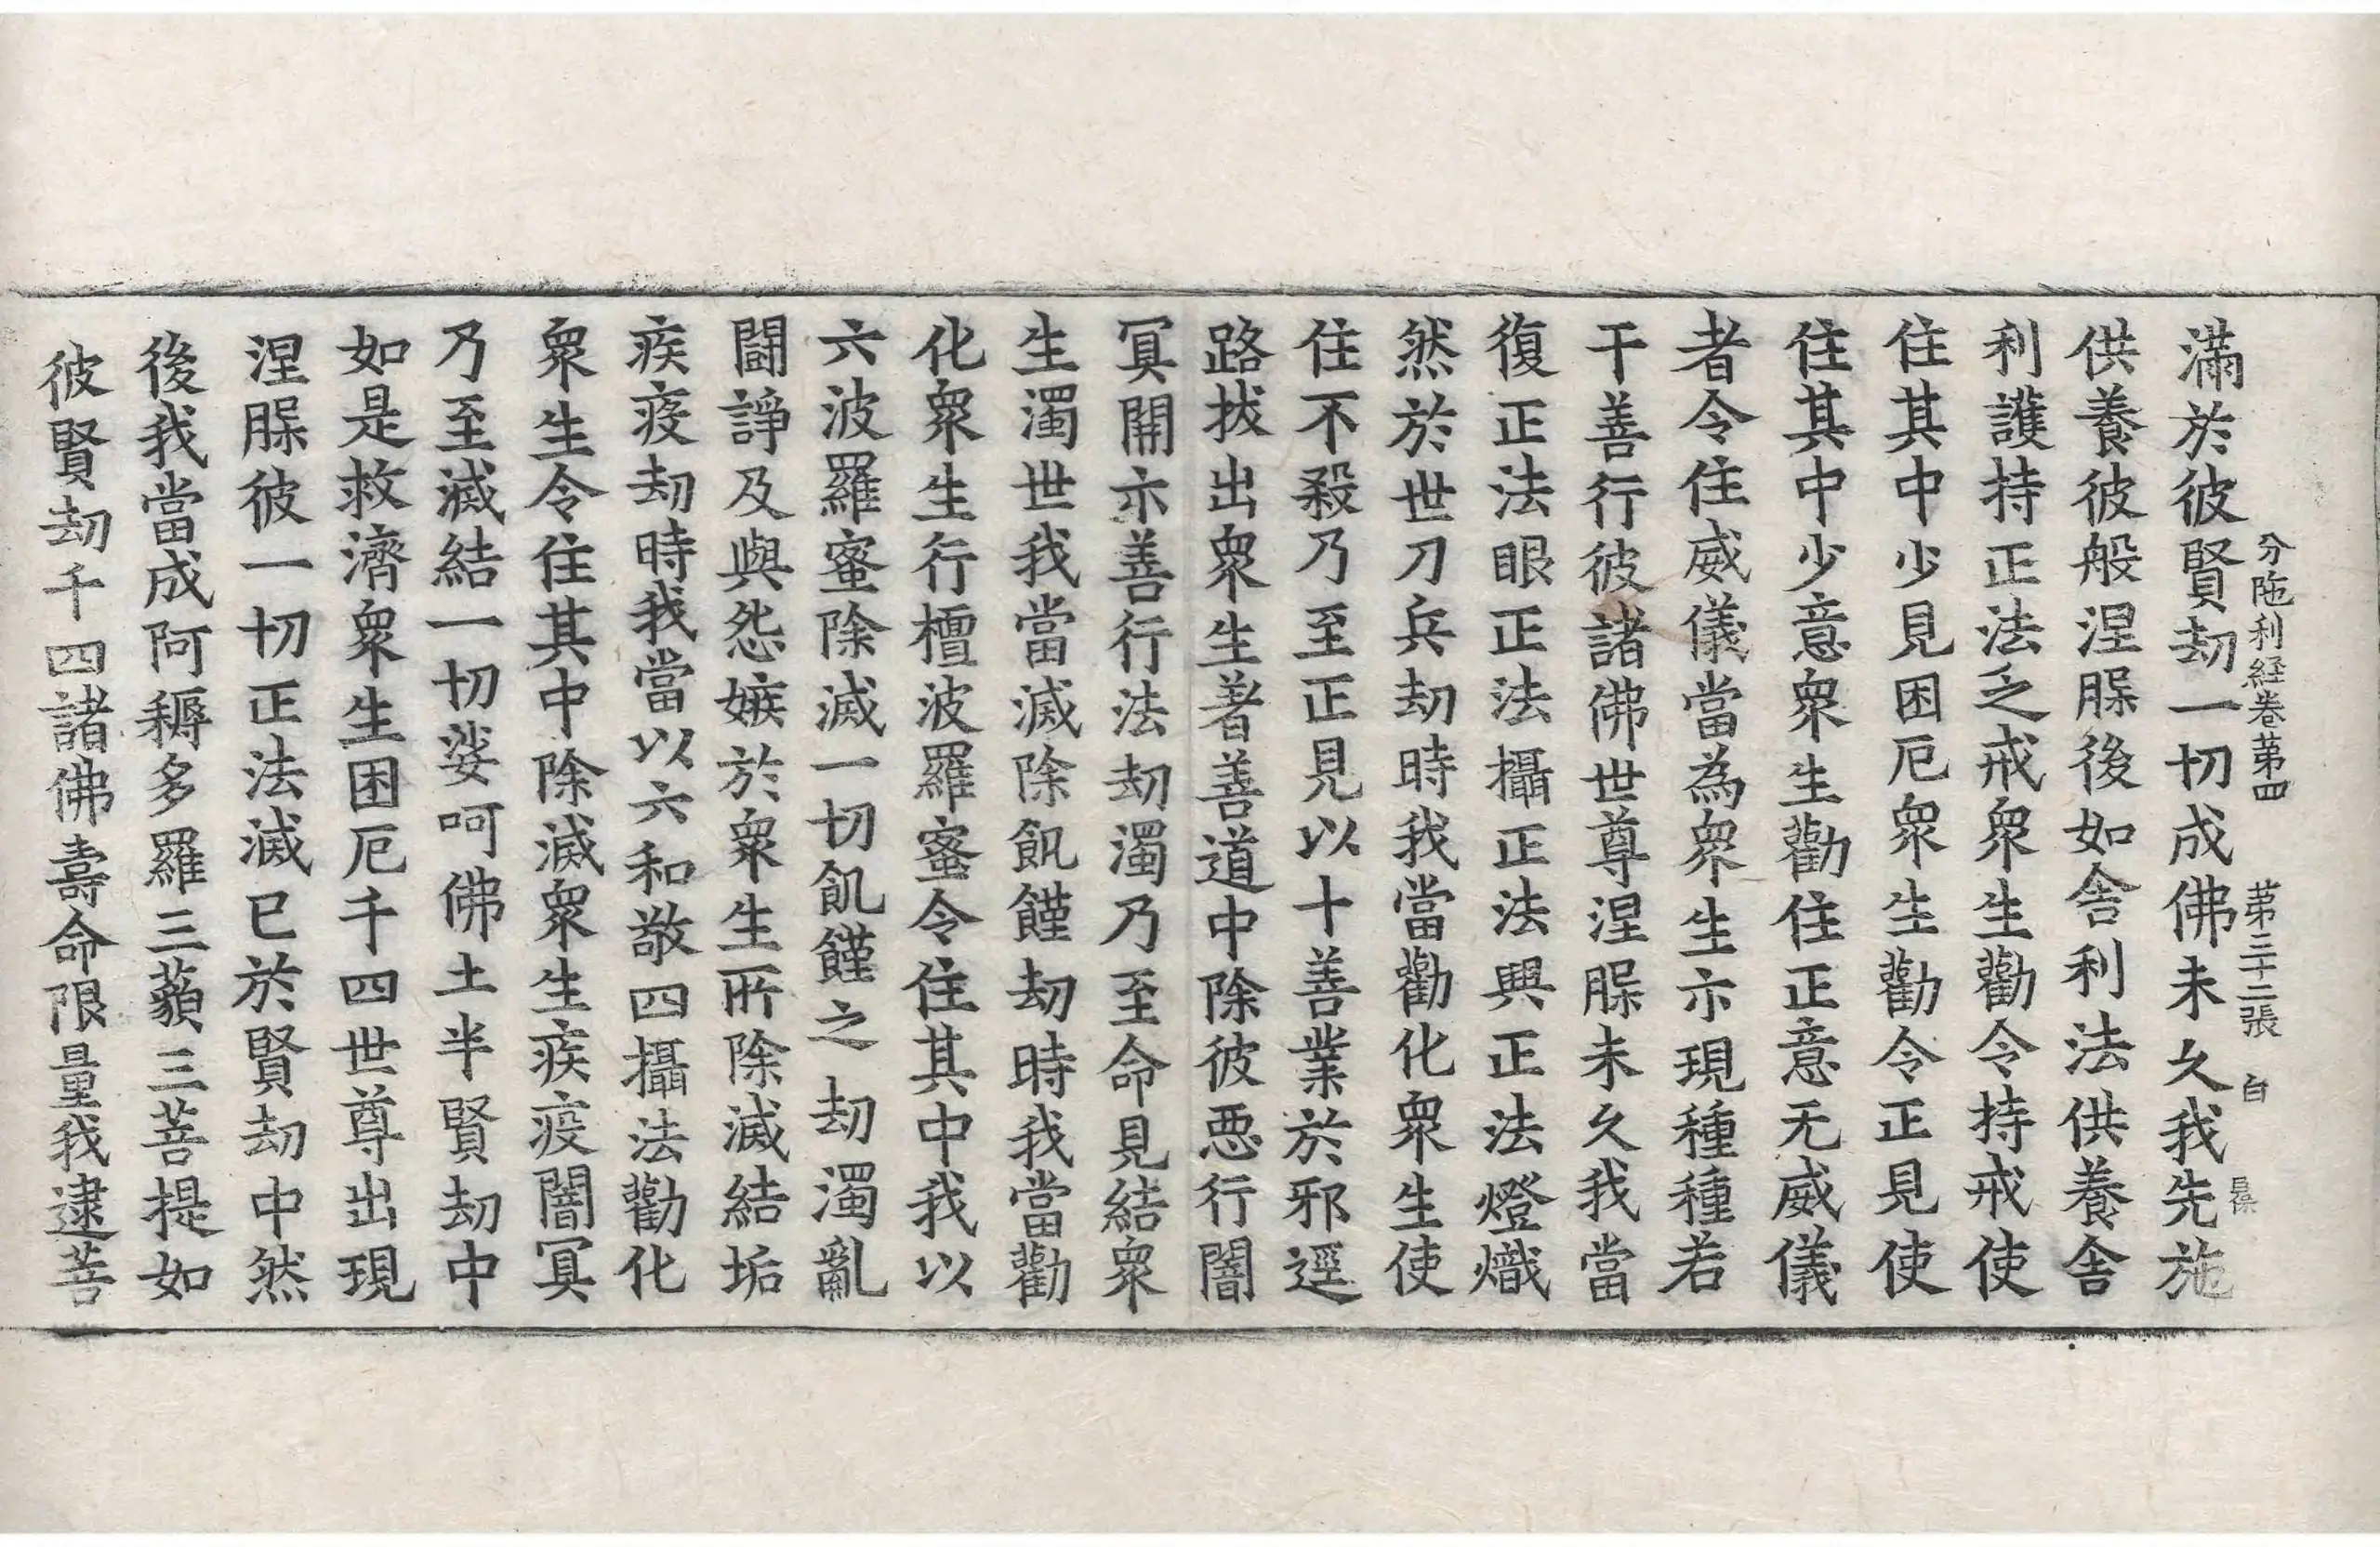 分陁利経卷苐四 苐三十二張 白
滿於彼賢劫一切成佛未久我先施
供養彼般涅槃後如舍利法供養舍
利護持正法乏戒衆生勸令持戒使
住其中少見困厄衆生勸令正見使
住其中少意衆生勸住正意无威儀
者令住威儀當為衆生示現種種若
干善行彼諸佛世尊涅槃未久我當
復正法眼正法攝正法興正法燈熾
然於世刀兵劫時我當勸化衆生使
住不殺乃至正見以十善業於邪逕
路拔出衆生著善道中除彼惡行闇
冥開示善行法劫濁乃至命見結衆
生濁世我當滅除飢饉劫時我當勸
化衆生行檀波羅蜜令住其中我以
六波羅蜜除滅一切飢饉之劫濁亂
鬪諍及與怨嫉於衆生所除滅結垢
疾疫劫時我當以六和敬四攝法勸化
衆生令住其中除滅衆生疾疫闇冥
乃至滅結一切娑呵佛土半賢劫中
如是救濟衆生困厄千四世尊出現
涅槃彼一切正法滅已於賢劫中然
後我當成阿耨多羅三藐三菩提如
彼賢劫千四諸佛壽命限量我逮菩